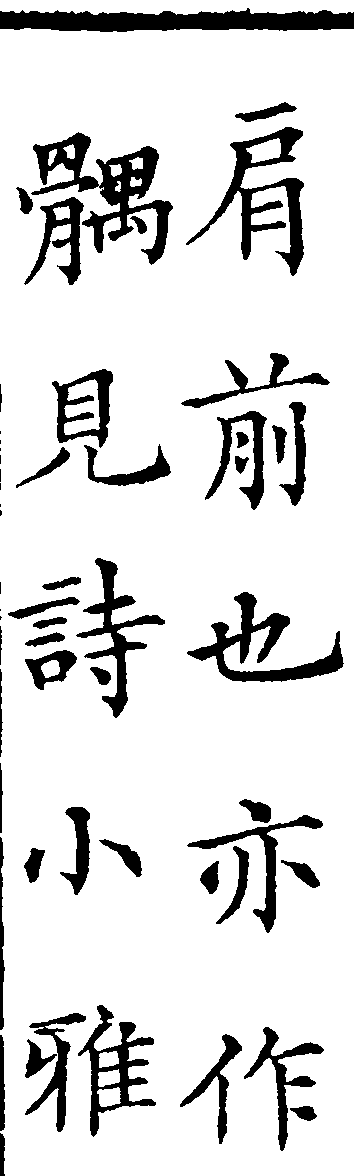 肩前也亦作
髃見詩小雅